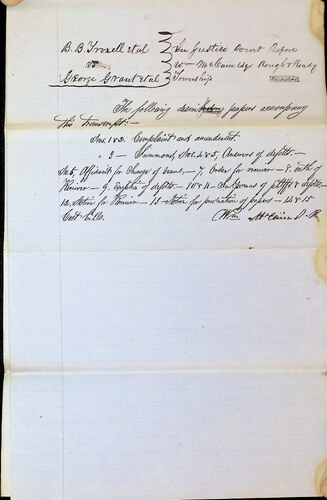 B. B. Troxell et al } In Justice Court Before
vs } Wm McClain Esq Rough & Ready
George Grant et al } Township
The following papers accompany
this transcript:—
Nos 1 & 2. Complaint and amendment
" 3 — Summons, Nos 4 & 5, Answers of defts.—
No 6, Affidavit for Change of venue,— 7, Order for — 8,
— 9, of defts.— 10 & 11 — of plffs & defts.—
12, Notice for — 13 Notice for of papers — 14 & 15
Cost bills.
Wm McClain J. P.